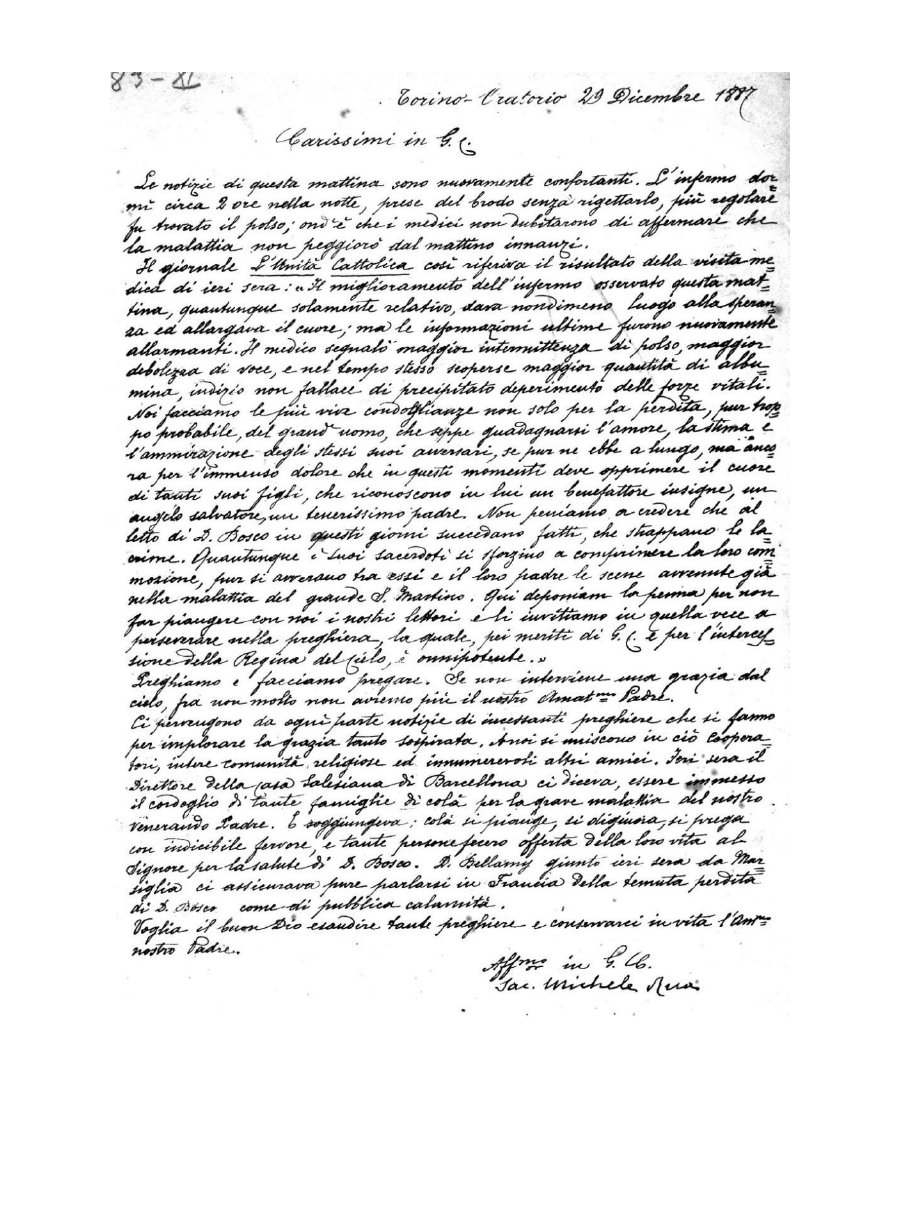 83 - XI
Torino-Oratorio 29 Dicembre 1887
Carissimi in G. C.
Le notizie di questa mattina sono nuovamente confortanti. L'infermo dor=
mì circa 2 ore nella notte, prese del brodo senza rigettarlo, più regolare
fu trovato il polso; ond'è che i medici non dubitarono di affermare che
la malattia non peggiorò dal mattino innanzi.
Il giornale L'Unità Cattolica così riferiva il risultato della visita me=
dica di ieri sera: "Il miglioramento dell'infermo osservato questa mat=
tina, quantunque solamente relativo, dava nondimeno luogo alla speran=
za ed allargava il cuore; ma le informazioni ultime furono nuovamente
allarmanti. Il medico segnalò maggior intermittenza di polso, maggior
debolezza di voce, e nel tempo stesso scoperse maggior quantità di albu=
mina, indizio non fallace di precipitato deperimento delle forze vitali.
Noi facciamo le più vive condoglianze non solo per la perdita, pur trop=
po probabile, del grand'uomo, che seppe guadagnarsi l'amore, la stima e
l'ammirazione degli stessi suoi avversari, se pur ne ebbe a lungo, ma anco=
ra per l'immenso dolore che in questi momenti deve opprimere il cuore
di tanti suoi figli, che riconoscono in lui un benefattore insigne, un
angelo salvatore, un tenerissimo padre. Non peniamo a credere che al
letto di D. Bosco in questi giorni succedano fatti, che strappano le la=
crime. Quantunque i suoi sacerdoti si sforzino a comprimere la loro com=
mozione, pur si avverano tra essi e il loro padre le scene avvenute già
nella malattia del grande S. Martino. Qui deponiam la penna per non
far piangere con noi i nostri lettori e li invitiamo in quella vece a
perseverare nella preghiera, la quale, pei meriti di G. C. e per l'interces=
sione della Regina del Cielo, è onnipotente."
Preghiamo e facciamo pregare. Se non interviene una grazia dal
cielo, fra non molto non avremo più il nostro Amat.mo Padre.
Ci pervengono da ogni parte notizie di incessanti preghiere che si fanno
per implorare la grazia tanto sospirata. A noi si uniscono in ciò Coopera=
tori, intere comunità religiose ed innumerevoli altri amici. Ieri sera il
Direttore della Casa Salesiana di Barcellona ci diceva, essere immenso
il cordoglio di tante famiglie di colà per la grave malattia del nostro
Venerando Padre. E soggiungeva: colà si piange, si digiuna, si prega
con indicibile fervore, e tante persone fecero offerta della loro vita al
Signore per la salute di D. Bosco. D. Bellamy giunto ieri sera da Mar=
siglia ci assicurava pure parlarsi in Francia della temuta perdita
di D. Bosco come di pubblica calamità.
Voglia il buon Dio esaudire tante preghiere e conservarci in vita l'Am.mo
nostro Padre.
Aff.mo in G. C.
Sac. Michele Rua